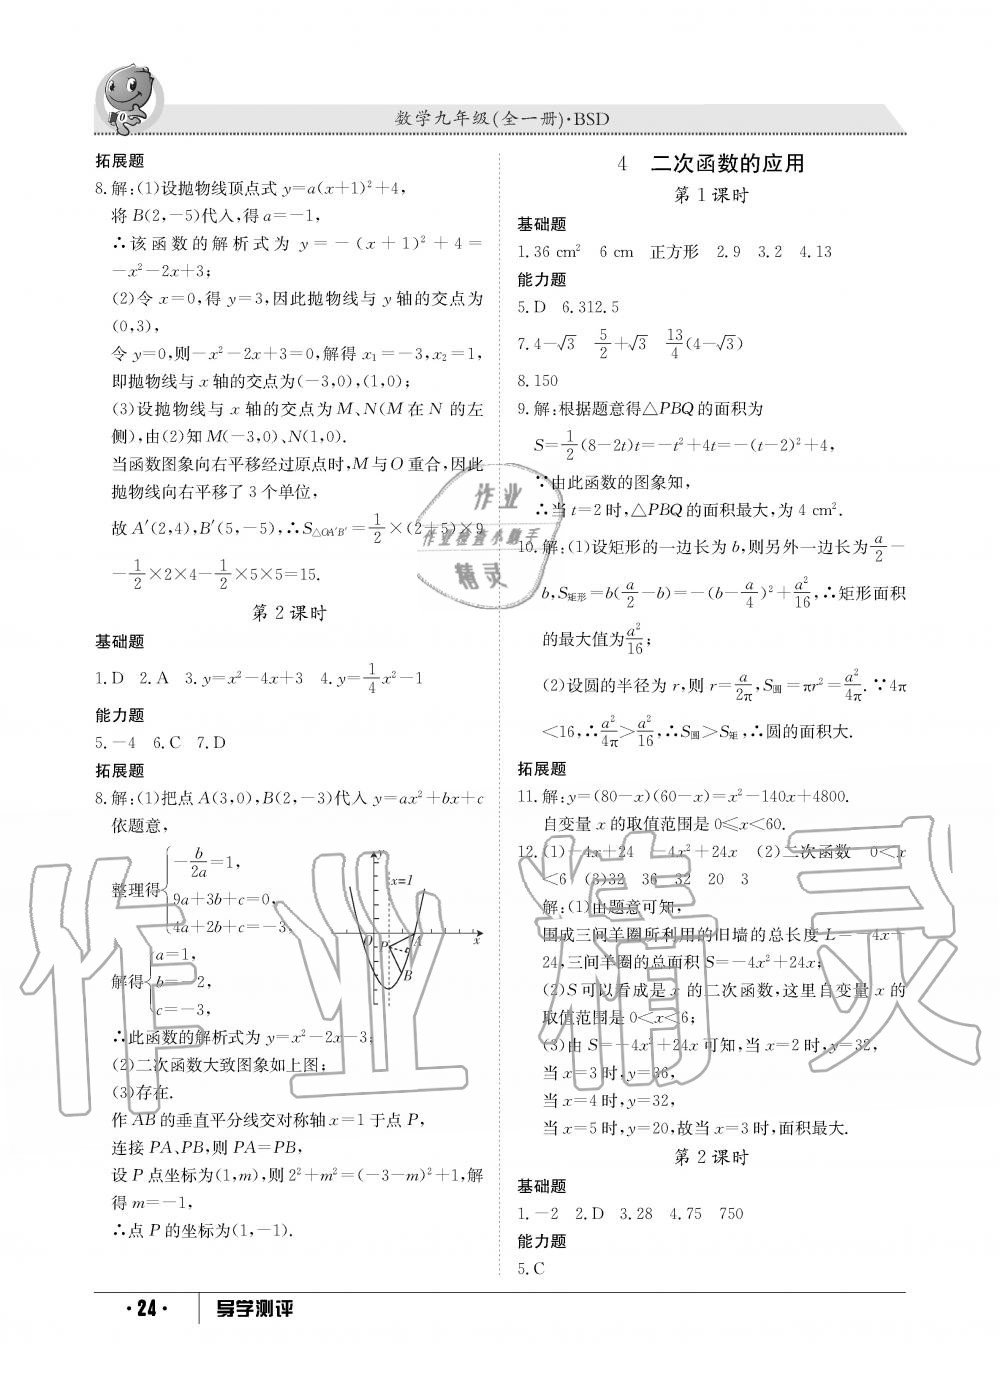 数学九年级(全一册)·BSD
拓展题
8.解:(1)设抛物线顶点式 y=a(x+1)²+4,
将 B(2,-5)代入,得 a=-1,
∴该函数的解析式为 y=-(x+1)²+4=
-x²-2x+3;
(2)令 x=0,得 y=3,因此抛物线与 y 轴的交点为
(0,3),
令 y=0,则-x²-2x+3=0,解得 x₁=-3,x₂=1,
即抛物线与 x 轴的交点为(-3,0),(1,0);
(3)设抛物线与 x 轴的交点为 M、N(M 在 N 的左
侧),由(2)知 M(-3,0)、N(1,0).
当函数图象向右平移经过原点时,M 与 O 重合,因此
抛物线向右平移了 3 个单位,
故 A′(2,4),B′(5,-5),∴S△OA′B′=1/2×(2+5)×9
-1/2×2×4-1/2×5×5=15.
第 2 课时
基础题
1.D 2.A 3.y=x²-4x+3 4.y=1/4x²-1
能力题
5.-4 6.C 7.D
拓展题
8.解:(1)把点 A(3,0),B(2,-3)代入 y=ax²+bx+c
依题意,
整理得{-b/2a=1,
9a+3b+c=0,
4a+2b+c=-3,
解得{a=1,
b=-2,
c=-3,
y
x=1
O
P
A
x
B
∴此函数的解析式为 y=x²-2x-3;
(2)二次函数大致图象如上图;
(3)存在.
作 AB 的垂直平分线交对称轴 x=1 于点 P,
连接 PA、PB,则 PA=PB,
设 P 点坐标为(1,m),则 2²+m²=(-3-m)²+1,解
得 m=-1,
∴点 P 的坐标为(1,-1).
4 二次函数的应用
第 1 课时
基础题
1.36 cm² 6 cm 正方形 2.9 3.2 4.13
能力题
5.D 6.312.5
7.4-√3 5/2+√3 13/4(4-√3)
8.150
9.解:根据题意得△PBQ 的面积为
S=1/2(8-2t)t=-t²+4t=-(t-2)²+4,
∵由此函数的图象知,
∴当 t=2 时,△PBQ 的面积最大,为 4 cm².
10.解:(1)设矩形的一边长为 b,则另外一边长为a/2-
b,S矩形=b(a/2-b)=-(b-a/4)²+a²/16,∴矩形面积
的最大值为a²/16;
(2)设圆的半径为 r,则 r=a/2π,S圆=πr²=a²/4π.∵4π
<16,∴a²/4π>a²/16,∴S圆>S矩,∴圆的面积大.
拓展题
11.解:y=(80-x)(60-x)=x²-140x+4800.
自变量 x 的取值范围是 0≤x<60.
12.(1)-4x+24 -4x²+24x (2)二次函数 0<x
<6 (3)32 36 32 20 3
解:(1)由题意可知,
围成三间羊圈所利用的旧墙的总长度 L=-4x+
24,三间羊圈的总面积 S=-4x²+24x;
(2)S 可以看成是 x 的二次函数,这里自变量 x 的
取值范围是 0<x<6;
(3)由 S=-4x²+24x 可知,当 x=2 时,y=32,
当 x=3 时,y=36,
当 x=4 时,y=32,
当 x=5 时,y=20,故当 x=3 时,面积最大.
第 2 课时
基础题
1.-2 2.D 3.28 4.75 750
能力题
5.C
作业
作业检查小助手
精灵
作业精灵
·24· 导学测评